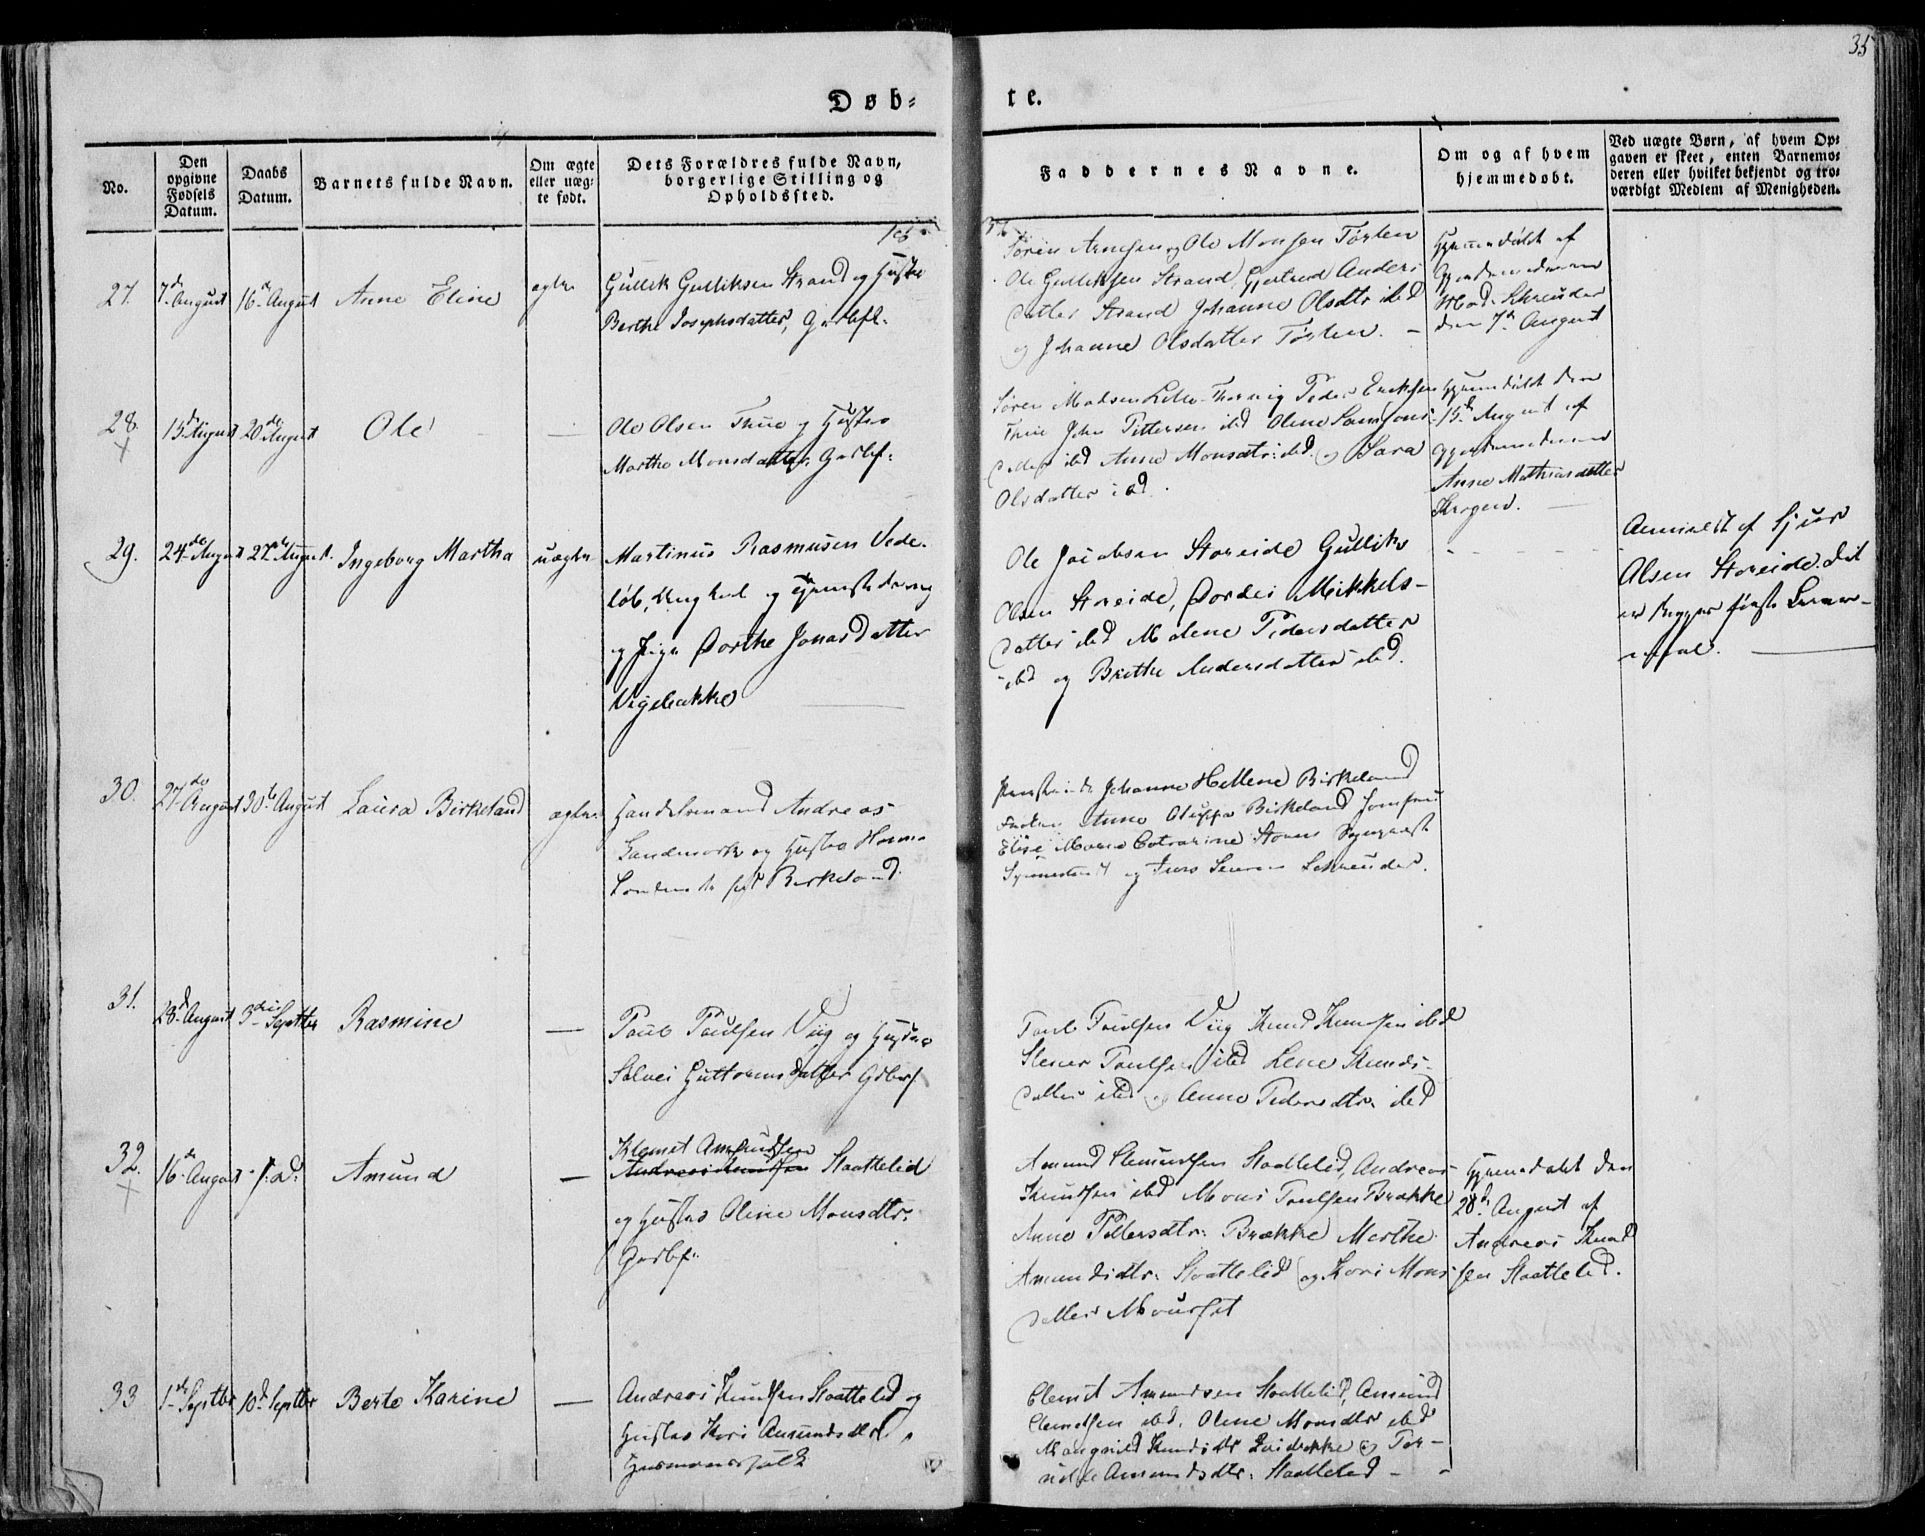 35
Døb=
te.
No.
Den opgivne Fødsels Datum.
Daabs Datum.
Barnets fulde Navn.
Om ægte eller uæg= te født.
Dets Forældres fulde Navn, borgerlige Stilling og Opholdssted.
Faddernes Navne.
Om og af hvem hjemmedøbt.
Ved uægte Børn, af hvem Op= gaven er skeet, enten Barnemo= deren eller hvilket bekjendt og tro= værdigt Medlem af Menigheden.
27. 7de August 16de August Anne Eline ægte
Gullik Gulliksen Strand og Hustro
Berthe Josephsdatter, Garbf.
Søren Arnesen og Ole Monsen Første
Ole Gulliksen Strand, Gjertrud Anders
datter Strand Johanne Olsdtr ibd
og Johanne Olsdatter
Hjemmedøbt af
Gjordemoderen
Mad. Schreuder
den 7de August
28. 15de August 20de August Ole —
Ole Olsen Thue og Hustro
Marthe Monsdatter Garbf.
Søren Madsen Peder Ericksen
Thue John Pettersen ibd Oline Samsons
datter ibd Anne Monsdtr ibd og Sara
Olsdatter ibd.
Hjemmedøbt den
15de August af
Gjordemoderen
Anne Mathiasdatter
Krogen.
29. 24de August 27de August. Ingeborg Martha uægte
Martinus Rasmusen Vede-
løb, Ungkarl og
og Pige Dorthe Jonasdatter
Vigebakke
Ole Jacobsen Storeide Gullik
Olsen Storeide, Dordei Mikkels-
datter ibd Malene Pedersdatter
ibd og Brithe Andersdatter ibd.
Anmeldt af Sjur
Olsen Storeide. Det
er Begges første Leier-
maal.
30. 27de August 30te August Laura Birkeland ægte
Handelsmand Andreas
Landmark og Hustro Hanna
Landmark født Birkeland.
Johanne Hellene Birkeland
Anne Birkeland Jomfrue
Elise Marie Catrarine
og Schreuder.
31. 28de August 3die Septbr Rasmine —
Poul Poulsen Viig og Hustro
Solvei Guttormsdatter Gdbrf
Poul Poulsen Viig Knud Knudsen ibd
Stener Poulsen ibd Lene Knuds-
datter ibd og Anne Pedersdtr. ibd
32. 16de August s. D. Amund —
Klemet Amundsen
Andreas Knudsen Staattelid
og Hustro Oline Monsdtr.
Garbf.
Amund Clemetsen Staattelid, Andreas
Knudsen ibd Mons Poulsen Brække
Anne Pettersdtr. Brække Marthe
Amundsdtr. Staattelid og Kari Mons
datter Moursæt
Hjemmedøbt den
20de August af
Andreas Knud
sen Staattelid.
33 1ste Septbr 10de Septbr Berte Karine —
Andreas Knudsen Staattelid og
Hustro Kari Amundsdtr,
Husmandsfolk
Clemet Amundsen Staattelid, Amund
Clemetsen ibd. Oline Monsdtr ibd
Magnild Knudsdtr og Tor-
Amundsdtr. Staattelid —